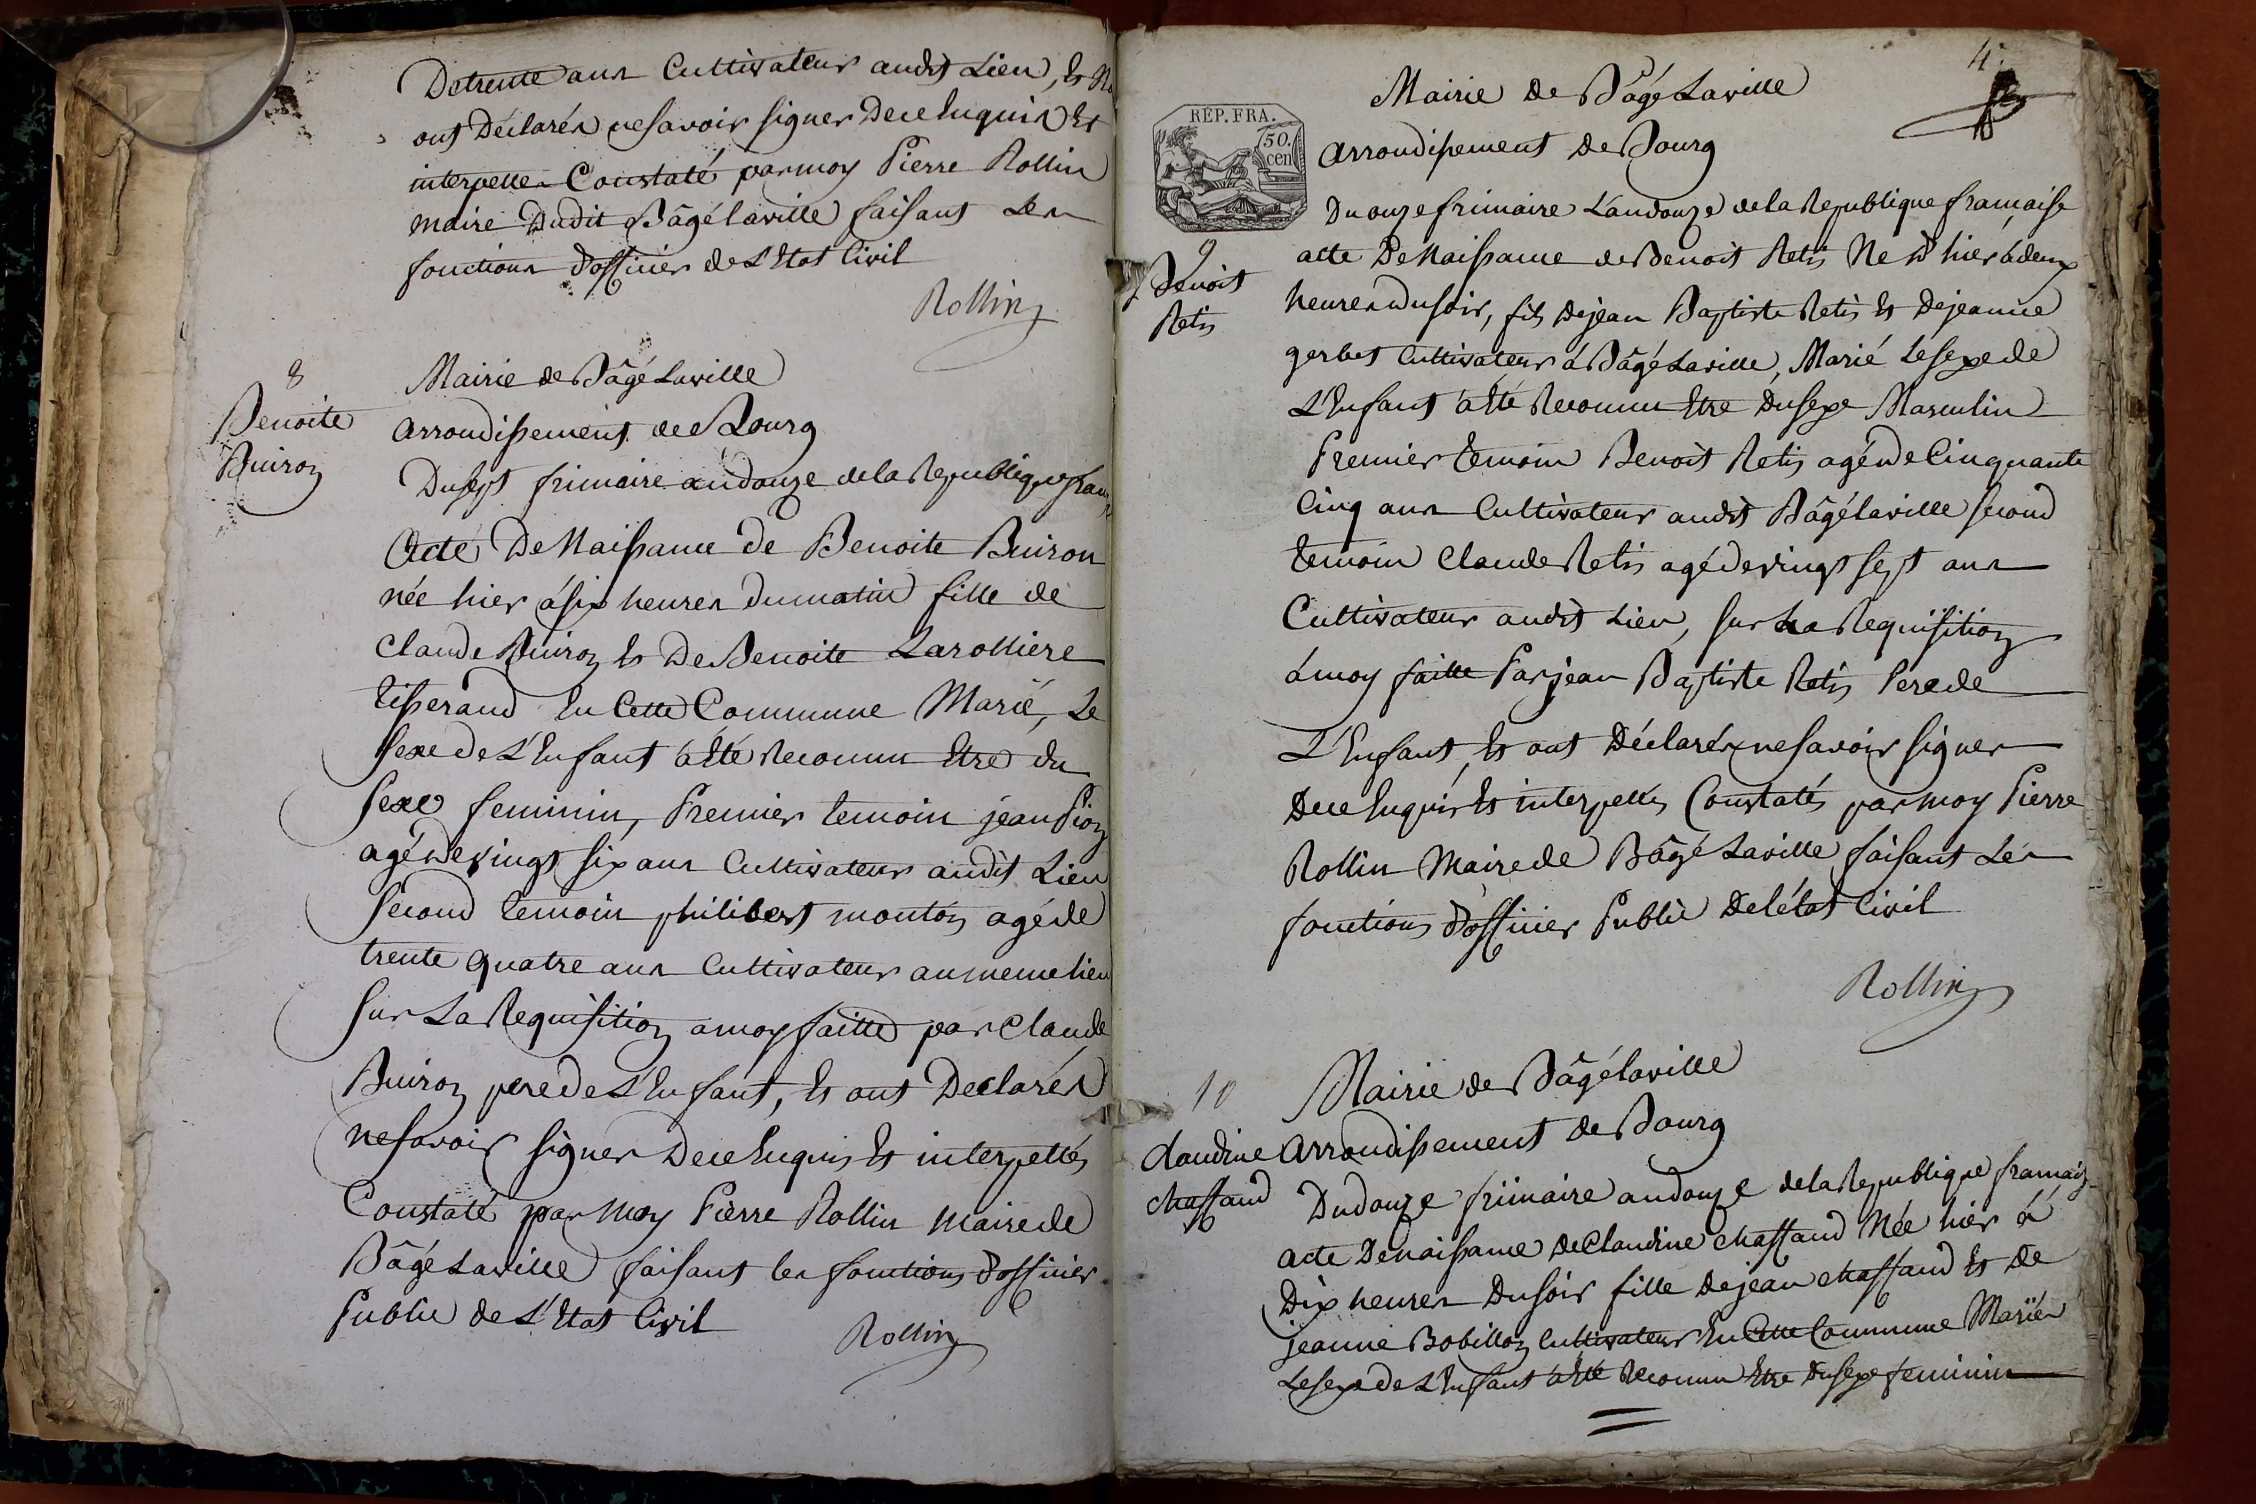 De trente ans Cultivateur audit Lieu, Et
ont Déclarés ne savoir signer De ce Enquis Et
interpellés Constaté par moy Pierre Rollin
maire Dudit Bâgé laville faisant Les
fonctions d'officier de L'Etat Civil
Rollin
8
Benoite
Buiron
Mairie de Bâgé Laville
Arrondissement de Bourg
Du sept frimaire an douze de la Republique
Acte De Naissance de Benoite Buiron
née hier à six heures du matin fille de
Claude Buiron Et De Benoite Larolliere
tisserand En Cette Commune Marié, Le
sexe de L'Enfant à Eté Reconnu Etre du
sexe feminin, Premier temoin jean Pion
agé de vingt six ans Cultivateur audit Lieu
second temoin philibert monton agé de
trente quatre ans Cultivateur au meme lieu
sur La Requisition a moy faitte par Claude
Buiron pere de L'Enfant, Et ont Declarés
ne savoir signer De ce Enquis Et interpellés
Constaté par moy Pierre Rollin maire de
Bâgé Laville faisant les fonctions d'officier
Public de L'Etat Civil
Rollin
4.
Mairie de Bâgé Laville
REP. FRA.
50.
cen
Arrondissement de Bourg
Du onze frimaire L'an douze de la Republique française
9
Benoit
Retis
acte De Naissance de Benoit Retis Né d'hier à deux
heures du soir, fils De jean Baptiste Retis Et De jeanne
gerbet Cultivateur à Bâgé Laville, Marié Le sexe de
L'Enfant à Eté Reconnu Etre Du sexe Masculin
Premier temoin Benoit Retis agé de Cinquante
Cinq ans Cultivateur audit Bâgé laville second
temoin Claude Retis agé de vingt sept ans
Cultivateur audit Lieu, sur La Requisition
à moy faitte Par jean Baptiste Retis Pere de
L'Enfant, Et ont Déclarés ne savoir signer
De ce Enquis Et interpellés Constaté par moy Pierre
Rollin Maire de Bâgé Laville faisant Les
fonctions d'officier Public De l'état Civil
Rollin
10
Claudine
Chassaud
Mairie de Bâgé laville
Arrondissement de Bourg
Du douze frimaire an douze de la Republique française
acte De naissance De Claudine Chassaud Née hier à
Dix heures Du soir fille De jean Chassaud Et De
jeanne Bobillon Cultivateur En Cette Commune Mariés
Le sexe de L'Enfant à Eté Reconnu Etre Du sexe feminin